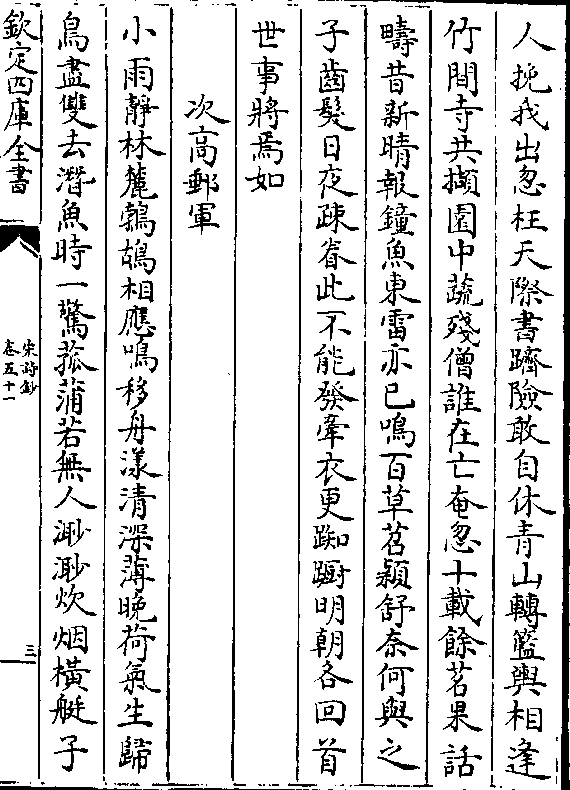 人挽我出忽枉天際書躋險敢自休青山轉籃輿相逢
竹間寺共擷園中蔬殘僧誰在亡奄忽十載餘茗果話
疇昔新晴報鐘魚東雷亦已鳴百草苕穎舒奈何與之
子齒髮日夜疎眷此不能發牽衣更踟蹰明朝各回首
世事將焉如
次高郵軍
小雨靜林麓鵓鴣相應鳴移舟漾清深薄晚荷氣生歸
鳥盡雙去潛魚時一驚菰蒲若無人渺渺炊烟橫艇子
欽定四庫全書
宋詩鈔
卷五十一
三